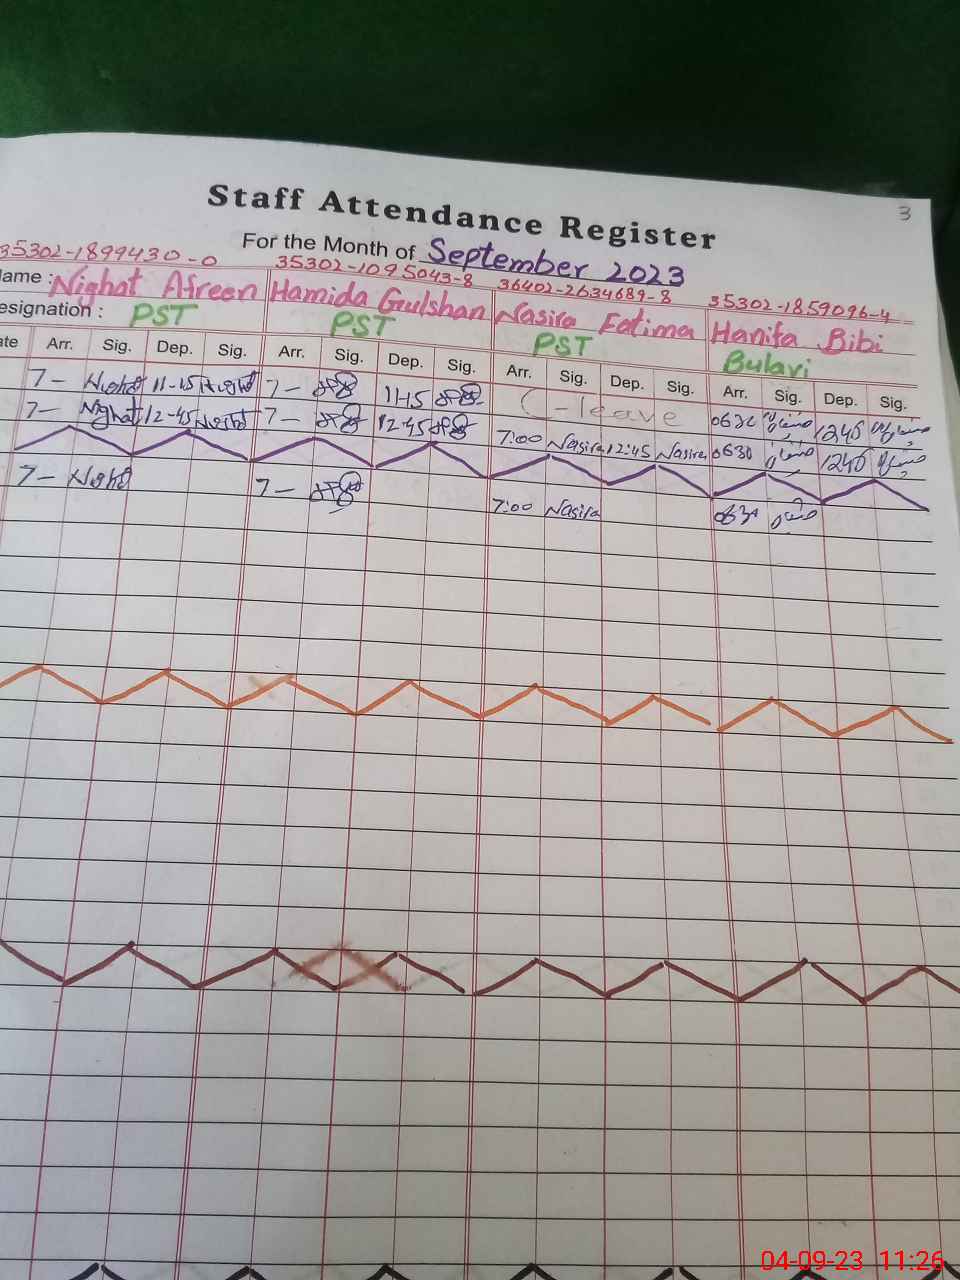 3
Staff Attendance Register
For the Month of September 2023
35302-1899430-0 35302-1095043-8 36402-2634689-8 35302-1859096-4
ame : Nighat Afreen Hamida Gulshan Nasira Fatima Hanifa Bibi
esignation : PST PST PST Bulavi
ate Arr. Sig. Dep. Sig. Arr. Sig. Dep. Sig. Arr. Sig. Dep. Sig. Arr. Sig. Dep. Sig.
7- Nighat 11-15 Nighat 7- 11-15 C-leave 0630 1240
7- Nighat 12-45 Nighat 7- 12-45 7:00 Nasira 12:45 Nasira 0630 1240
7- Nighat 7- 7:00 Nasira 0630
04-09-23 11:26